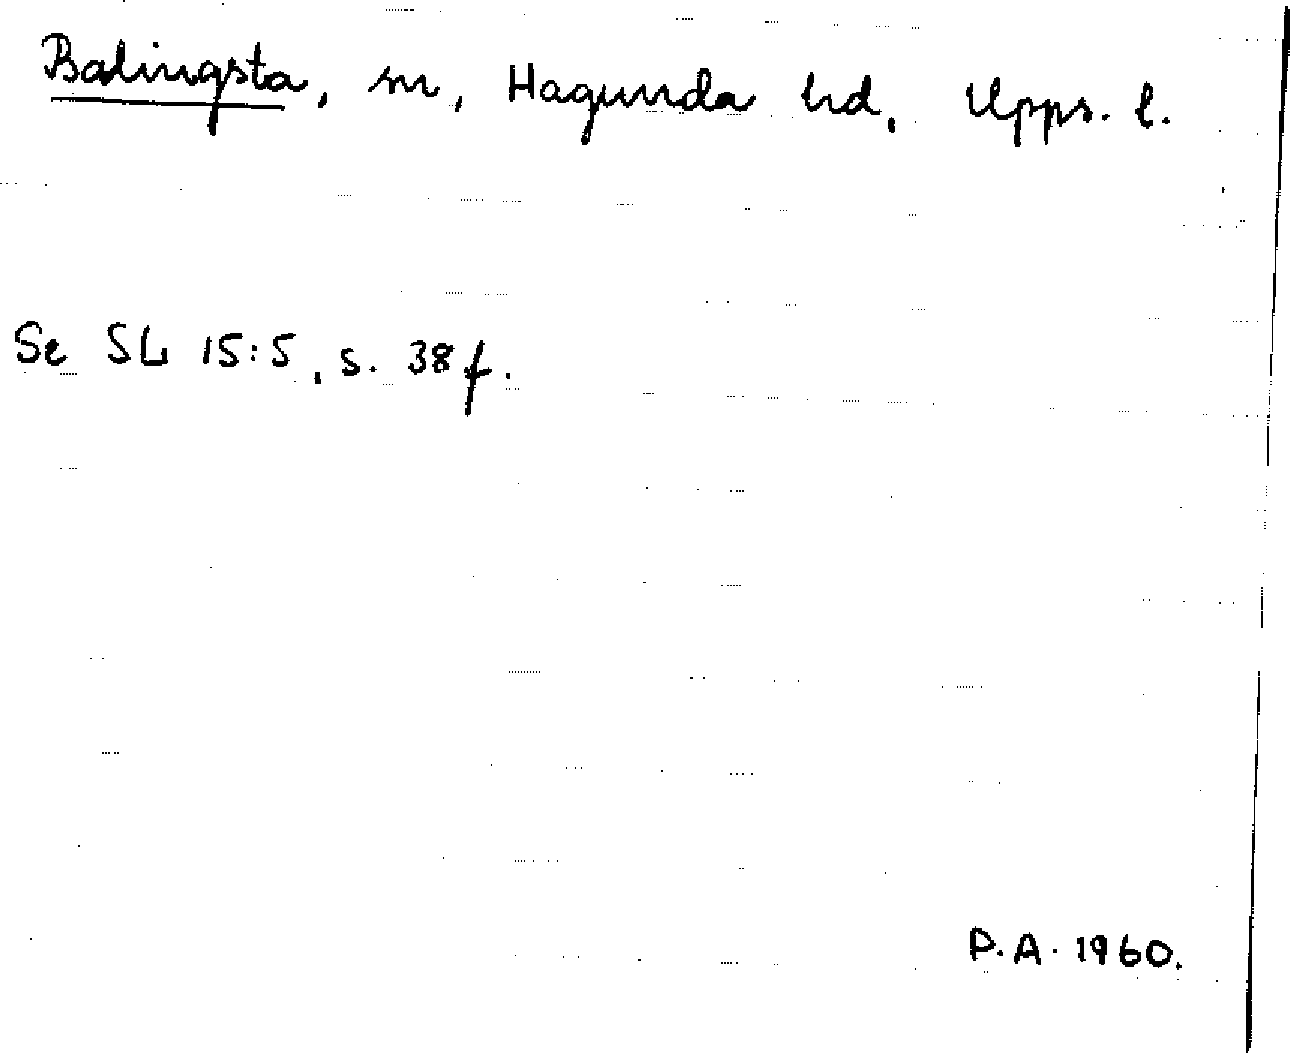 Balingsta, sn, Hagunda hd, Upps. l.
Se SL 15:5, s. 38 f.
P.A. 1960.